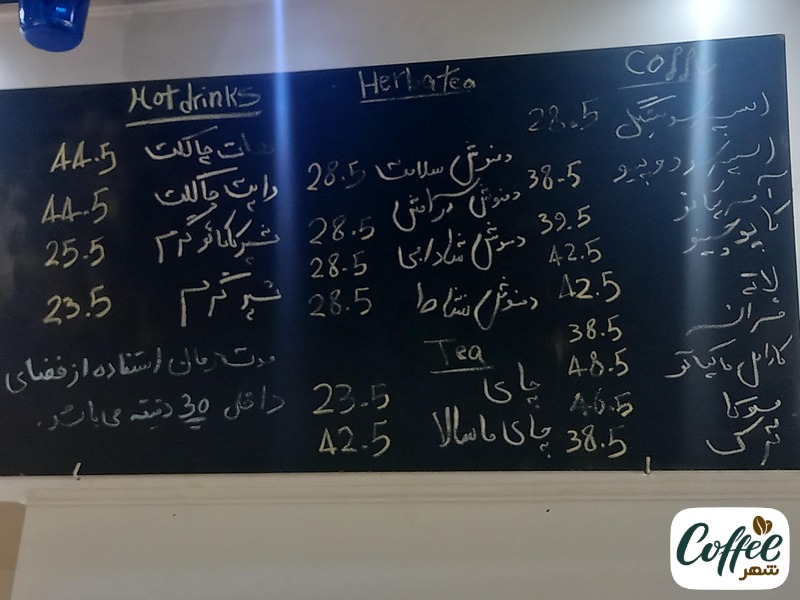 Coffe
اسپرسو سینگل 28.5
اسپرسو دوبیو 38.5
آمریکانو 39.5
کاپوچینو 42.5
لاته 42.5
فرانسه 38.5
کارامل ماکیاتو 48.5
موکا 46.5
ترک 38.5
Herbatea
دمنوش سلامت 28.5
دمنوش آرامش 28.5
دمنوش شادابی 28.5
دمنوش نشاط 28.5
Tea
چای 23.5
چای ماسالا 42.5
Hot drinks
هات چاکلت 44.5
وایت چاکلت 44.5
شیر کاکائو گرم 25.5
شیر گرم 23.5
مدت زمان استفاده از فضای
داخل 30 دقیقه می باشد.
Coffee
شهر